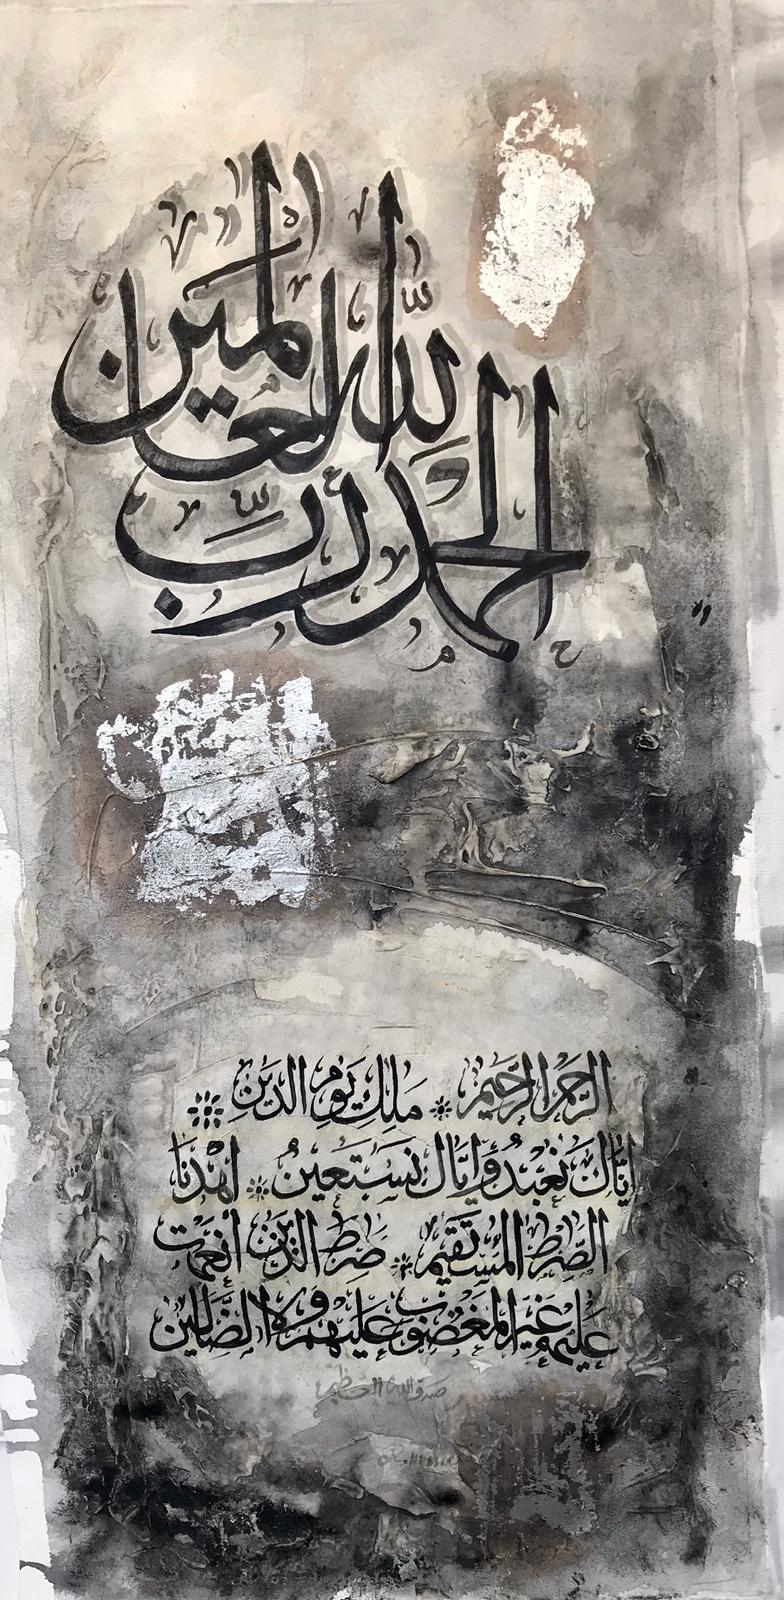 الحمد لله رب العالمين
الرحمن الرحيم * ملك يوم الدين *
إياك نعبد وإياك نستعين * اهدنا
الصرط المستقيم * صرط الذين أنعمت
عليهم غير المغضوب عليهم ولا الضالين
صدق الله العظيم